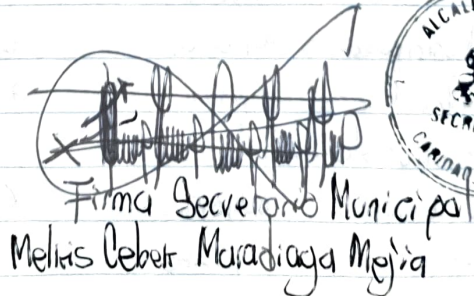 ALCAL
SECR
CARIDAD
Firma Secretario Municipal
Melkis Ceber Maradiaga Mejia